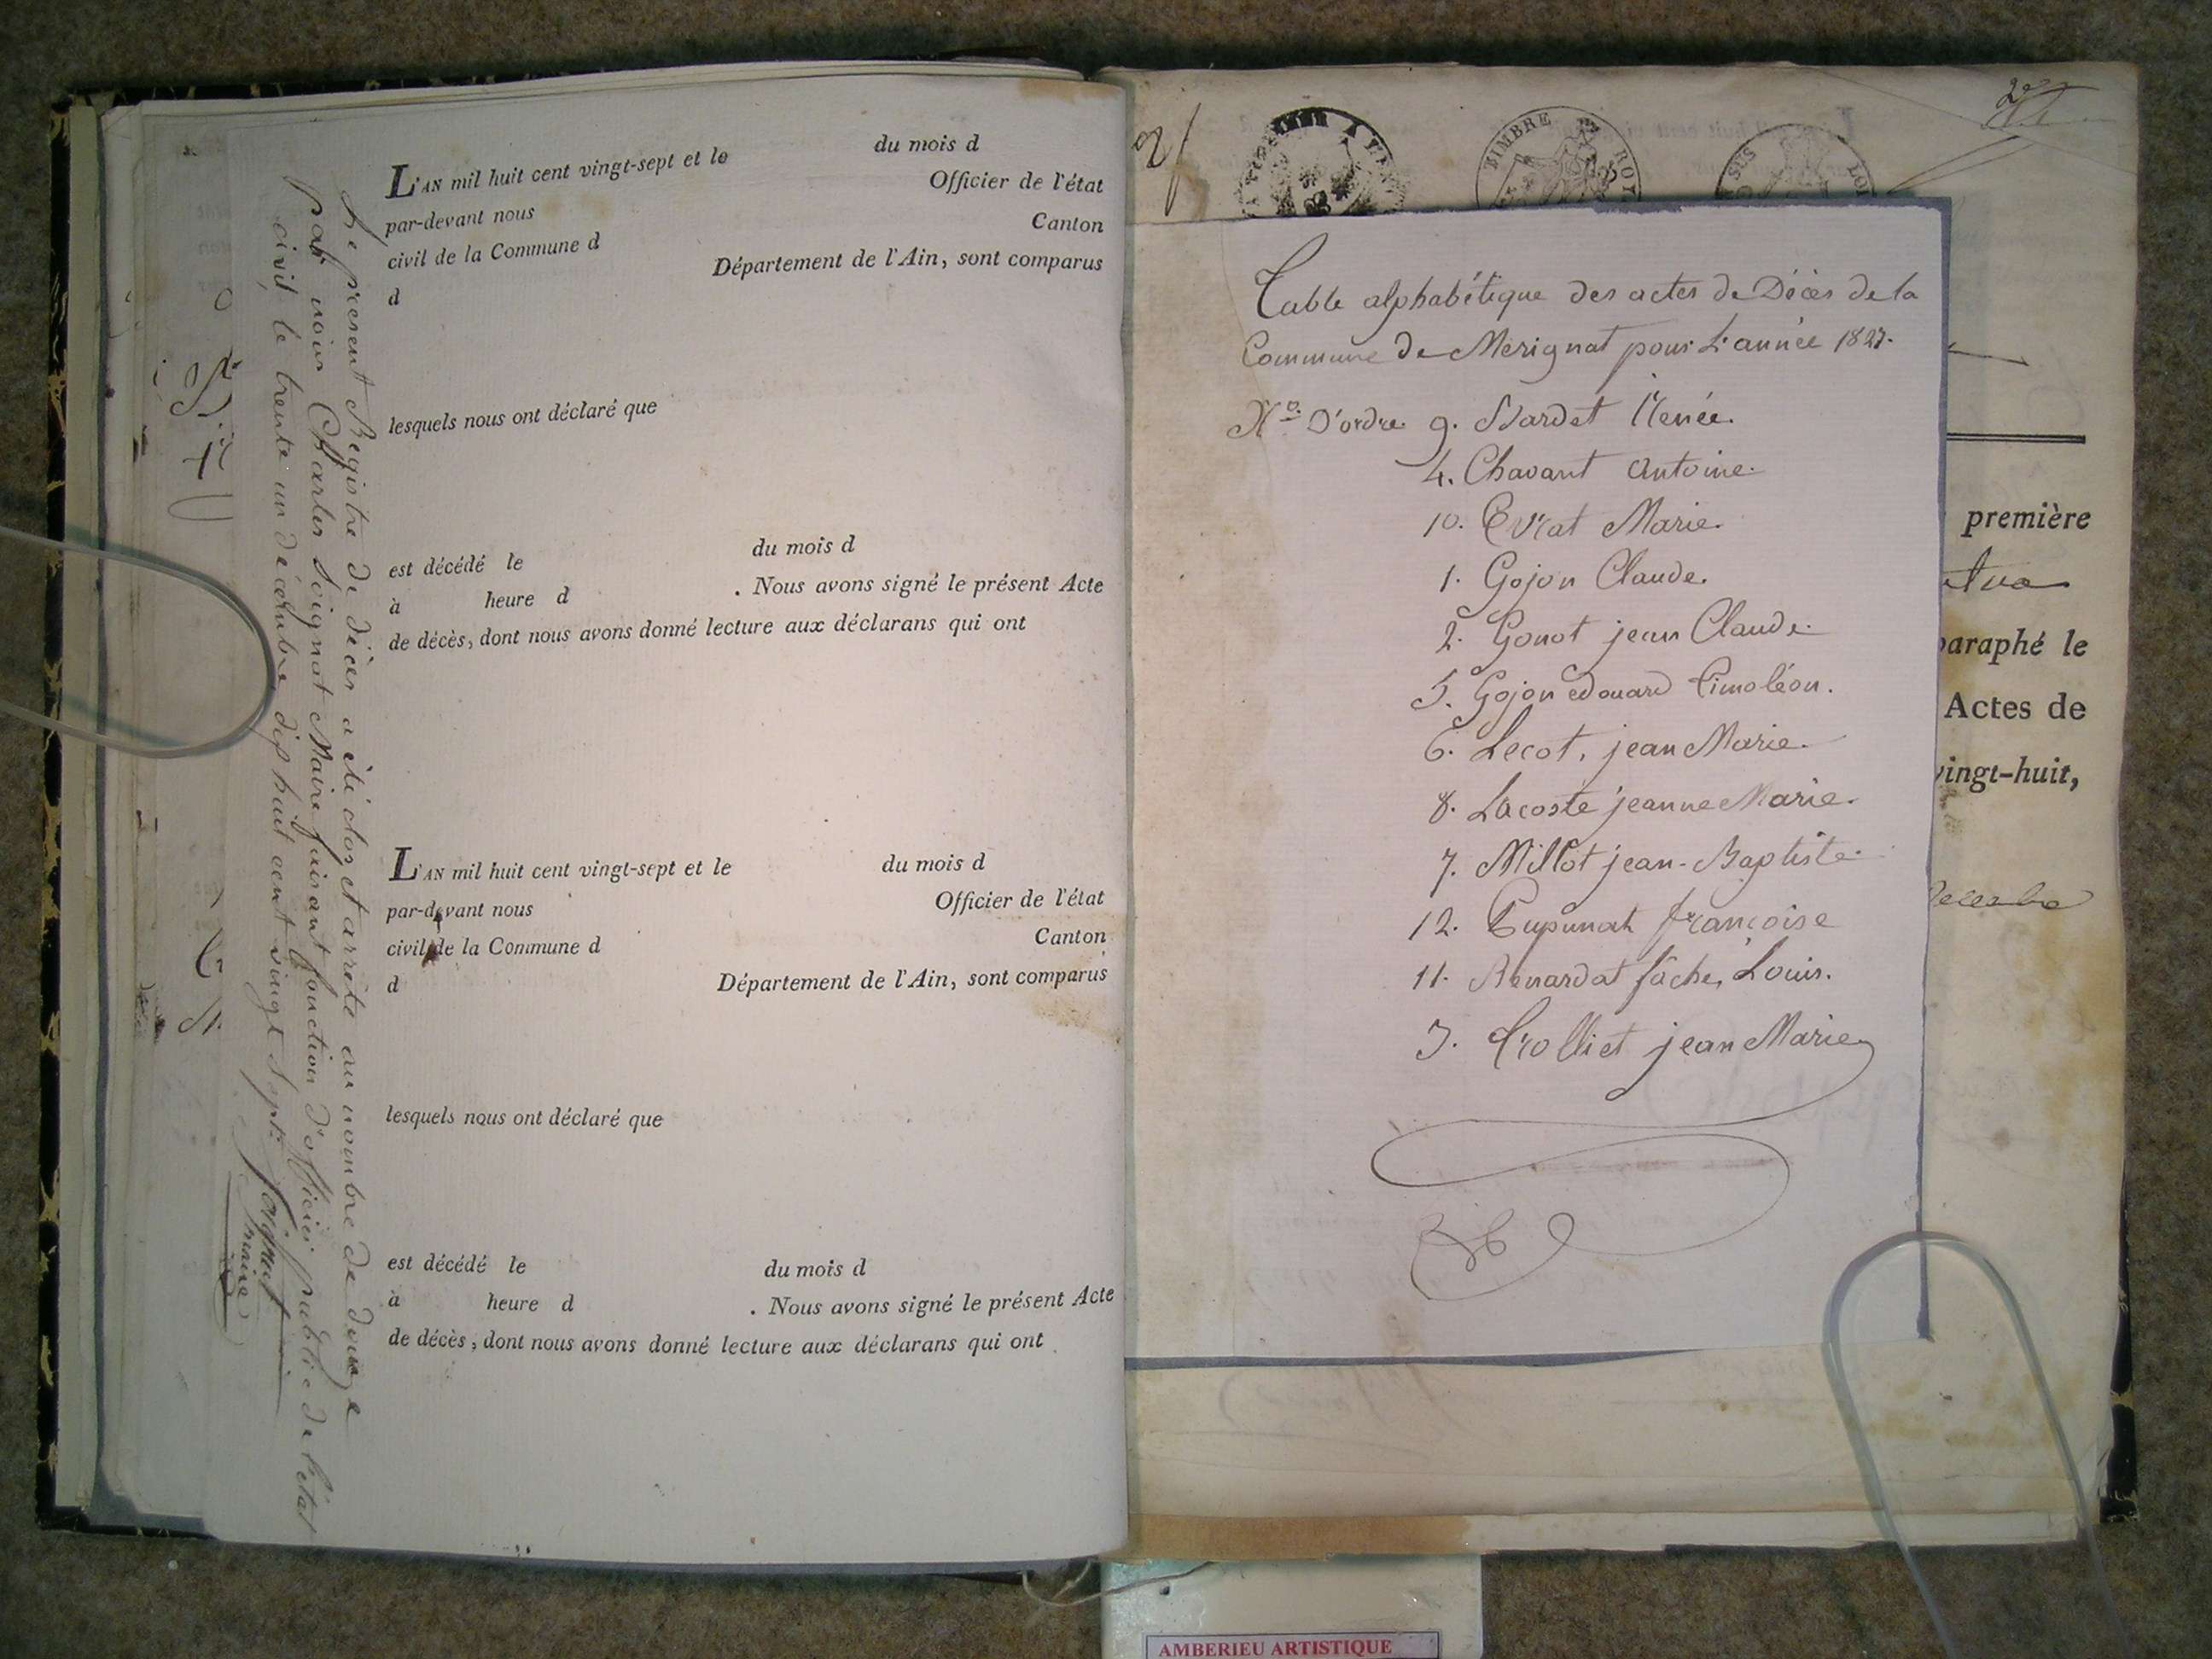 L'AN mil huit cent vingt-sept et le du mois d
par-devant nous Officier de l'état
civil de la Commune d Canton
d Département de l'Ain, sont comparus
lesquels nous ont déclaré que
est décédé le du mois d
à heure d . Nous avons signé le présent Acte
de décès, dont nous avons donné lecture aux déclarans qui ont
L'AN mil huit cent vingt-sept et le du mois d
par-devant nous Officier de l'état
civil de la Commune d Canton
d Département de l'Ain, sont comparus
lesquels nous ont déclaré que
est décédé le du mois d
à heure d . Nous avons signé le présent Acte
de décès, dont nous avons donné lecture aux déclarans qui ont
Le présent Registre de décès a été clos et arrêté au nombre de douze
par nous Charles Soignat Maire faisant fonction d'officier public de l'état
civil, le trente un décembre dix huit cent vingt sept.
maire
TIMBRE ROY
SUS
Table alphabétique des actes de Décès de la
Commune de Mérignat pour L'année 1827.
No. D'ordre 9. Bardet Renée.
4. Chavant Antoine.
10. Evrat Marie.
1. Gojon Claude.
2. Gonot jean Claude.
5. Gojon edouard Timoléon.
6. Lecot, jean Marie.
8. Lacoste jeanne Marie.
7. Millot jean-Baptiste.
12. Pupunat françoise
11. Renardat fâche, Louis.
3. Trolliet jean Marie
première
paraphé le
Actes de
vingt-huit,
AMBERIEU ARTISTIQUE